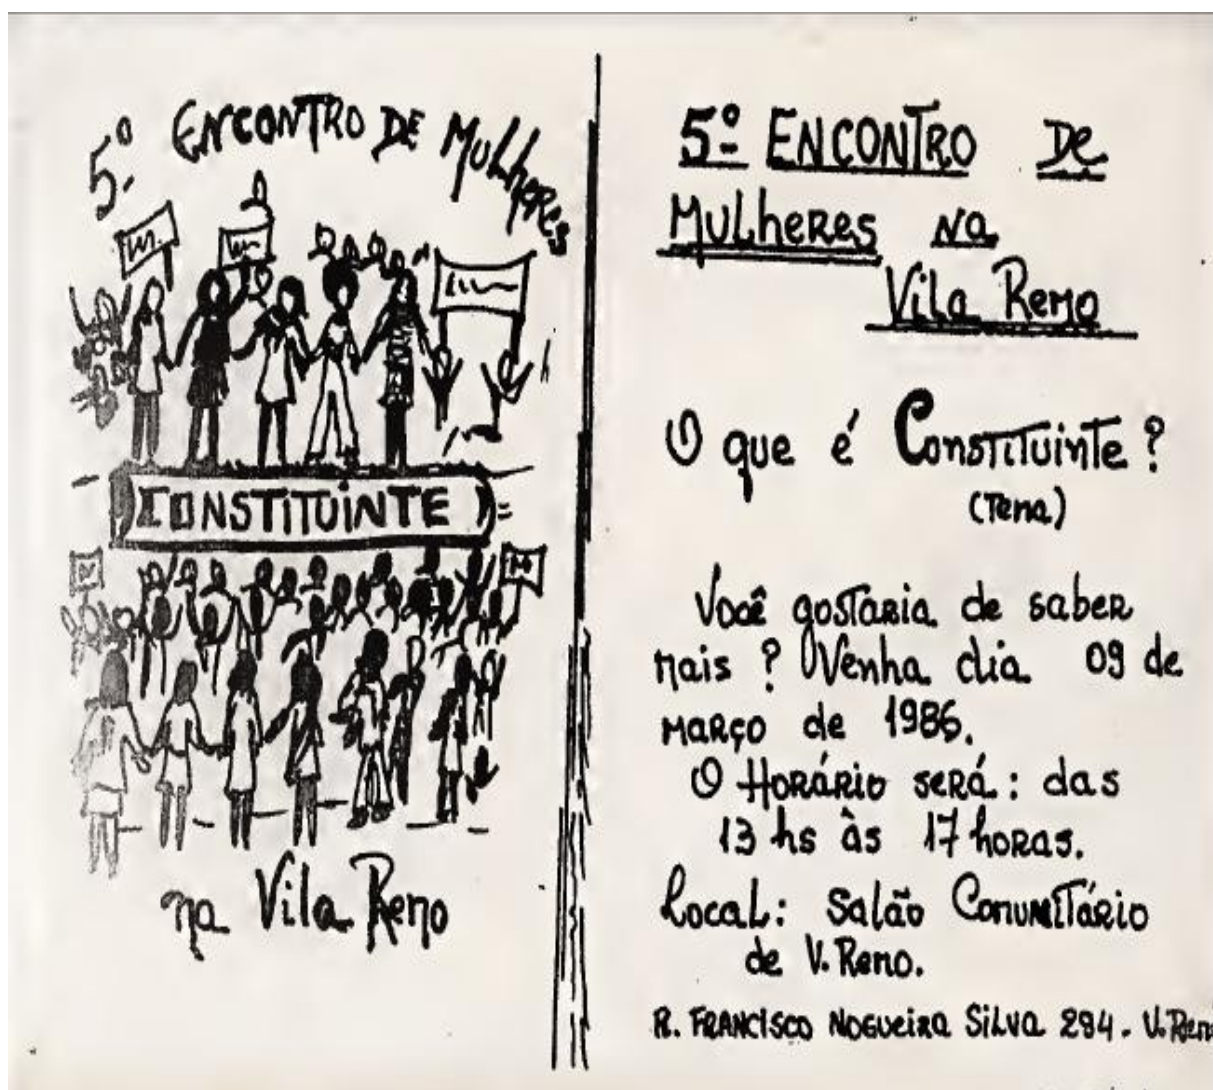 5º ENCONTRO DE Mulheres
CONSTITUINTE
na Vila Remo
5º ENCONTRO De
Mulheres na
Vila Remo
O que é Constituinte?
(Tema)
Você gostaria de saber
mais? Venha dia 09 de
março de 1986.
O Horário será: das
13 hs às 17 horas.
Local: Salão Comunitário
de V. Remo.
R. FRANCISCO NOGUEIRA SILVA 294. V. Rem